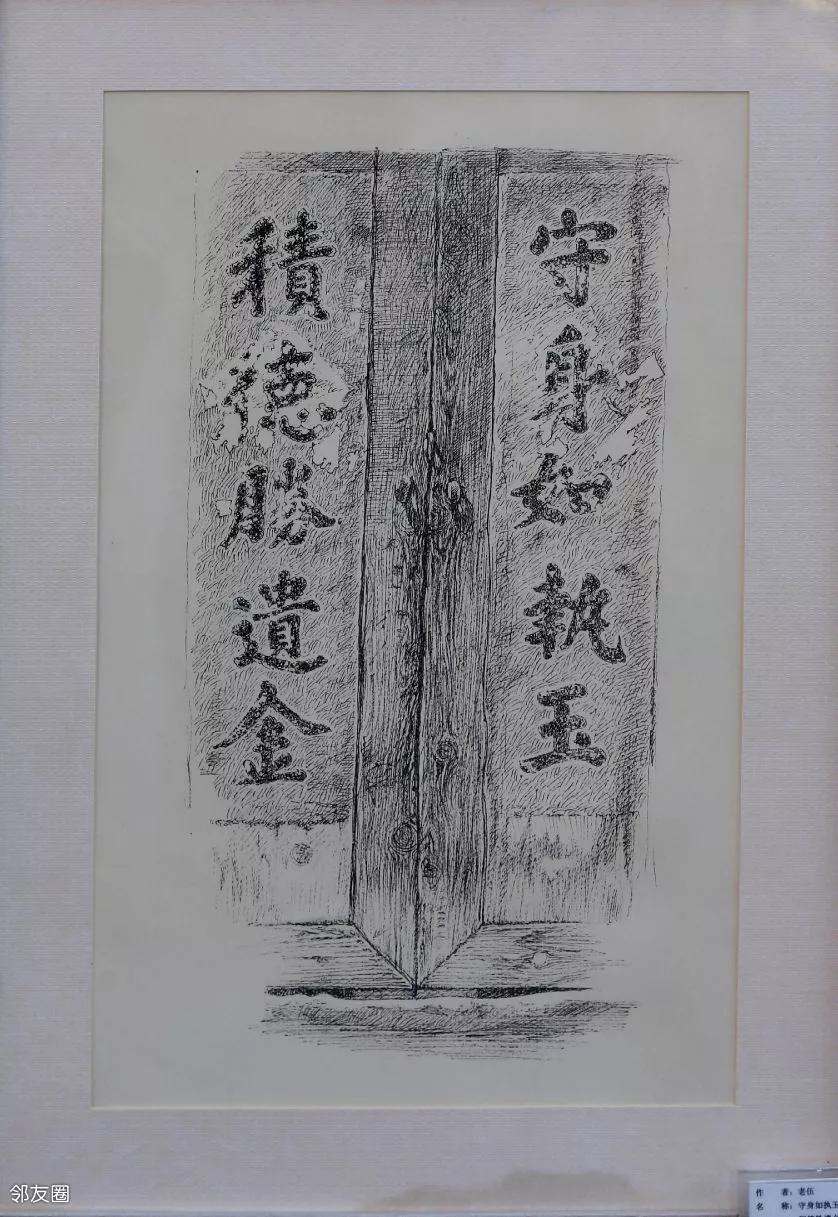 守身如執玉
積德勝遺金
作 者：老伍
名 称：守身如执玉
邻友圈